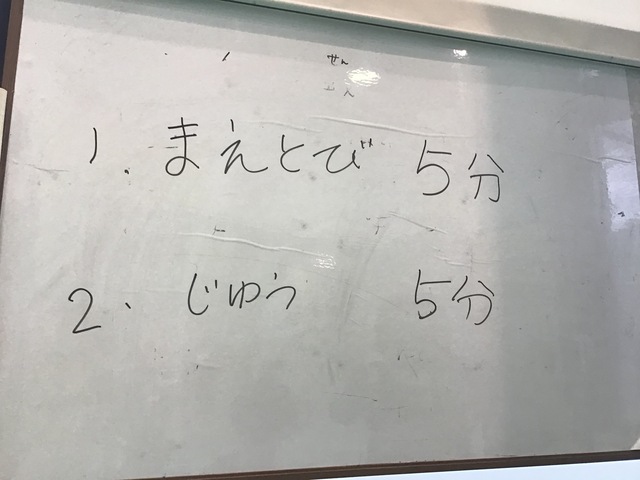 せん
1. まえとび 5分
2. じゆう 5分